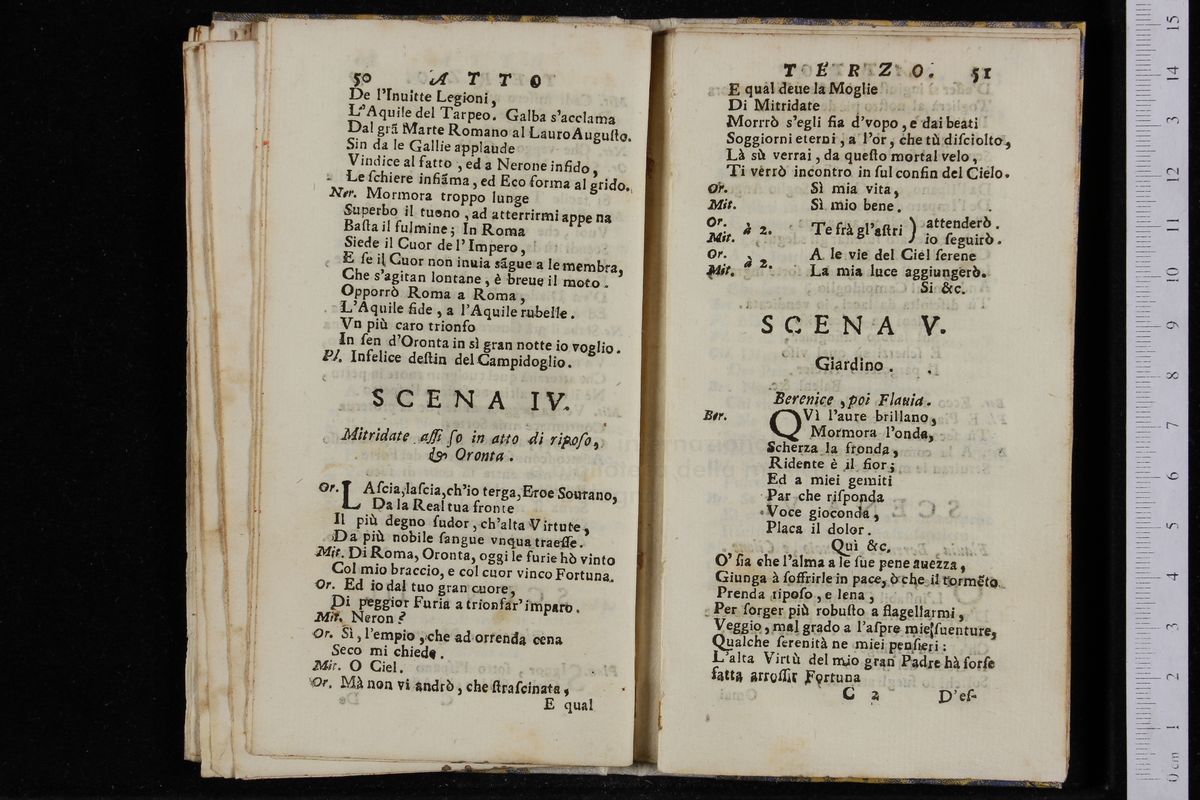 50 ATTO
De l'Inuitte Legioni,
L'Aquile del Tarpeo. Galba s'acclama
Dal grã Marte Romano al Lauro Auguſto.
Sin da le Gallie applaude
Vindice al fatto, ed a Nerone infido,
Le ſchiere infiãma, ed Eco forma al grido.
Ner. Mormora troppo lunge
Superbo il tuono, ad atterrirmi appena
Baſta il fulmine; In Roma
Siede il Cuor de l'Impero,
E ſe il Cuor non inuia sãgue a le membra,
Che s'agitan lontane, è breue il moto.
Opporrò Roma a Roma,
L'Aquile fide, a l'Aquile rubelle.
Vn più caro trionfo
In ſen d'Oronta in sì gran notte io voglio.
Pl. Infelice deſtin del Campidoglio.
SCENA IV.
Mitridate aſſiſo in atto di ripoſo,
& Oronta.
Or. LAſcia, laſcia, ch'io terga, Eroe Sourano,
Da la Real tua fronte
Il più degno ſudor, ch'alta Virtute,
Da più nobile ſangue vnqua traeſſe.
Mit. Di Roma, Oronta, oggi le furie hò vinto
Col mio braccio, e col cuor vinco Fortuna.
Or. Ed io dal tuo gran cuore,
Di peggior Furia a trionfar' imparo.
Mit. Neron?
Or. Sì, l'empio, che ad orrenda cena
Seco mi chiede.
Mit. O Ciel.
Or. Mà non vi andrò, che ſtraſcinata,
E qual
TERZO. 51
E qual deue la Moglie
Di Mitridate
Morrò s'egli fia d'vopo, e dai beati
Soggiorni eterni, a l'or, che tù diſciolto,
Là sù verrai, da queſto mortal velo,
Ti verrò incontro in ſul confin del Cielo.
Or. Sì mia vita,
Mit. Sì mio bene.
Or. Mit. à 2. Te frà gl'aſtri ) attenderò. io ſeguirò.
Or. A le vie del Ciel ſerene
Mit. à 2. La mia luce aggiungerò.
Si &c.
SCENA V.
Giardino.
Berenice, poi Flauia.
Ber. QVì l'aure brillano,
Mormora l'onda,
Scherza la fronda,
Ridente è il fior;
Ed a miei gemiti
Par che riſponda
Voce gioconda,
Placa il dolor.
Quì &c.
O' ſia che l'alma a le ſue pene auezza,
Giunga à ſoffrirle in pace, ò che il tormẽto
Prenda ripoſo, e lena,
Per ſorger più robuſto a flagellarmi,
Veggio, mal grado a l'aſpre mie ſuenture,
Qualche ſerenità ne miei penſieri:
L'alta Virtù del mio gran Padre hà forſe
fatta arroſſir Fortuna
C 2 D'eſ-